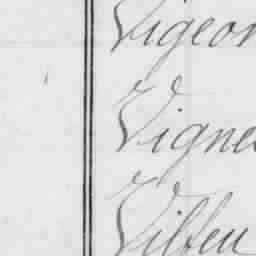 Vigeon
Vignes
Vilfeu